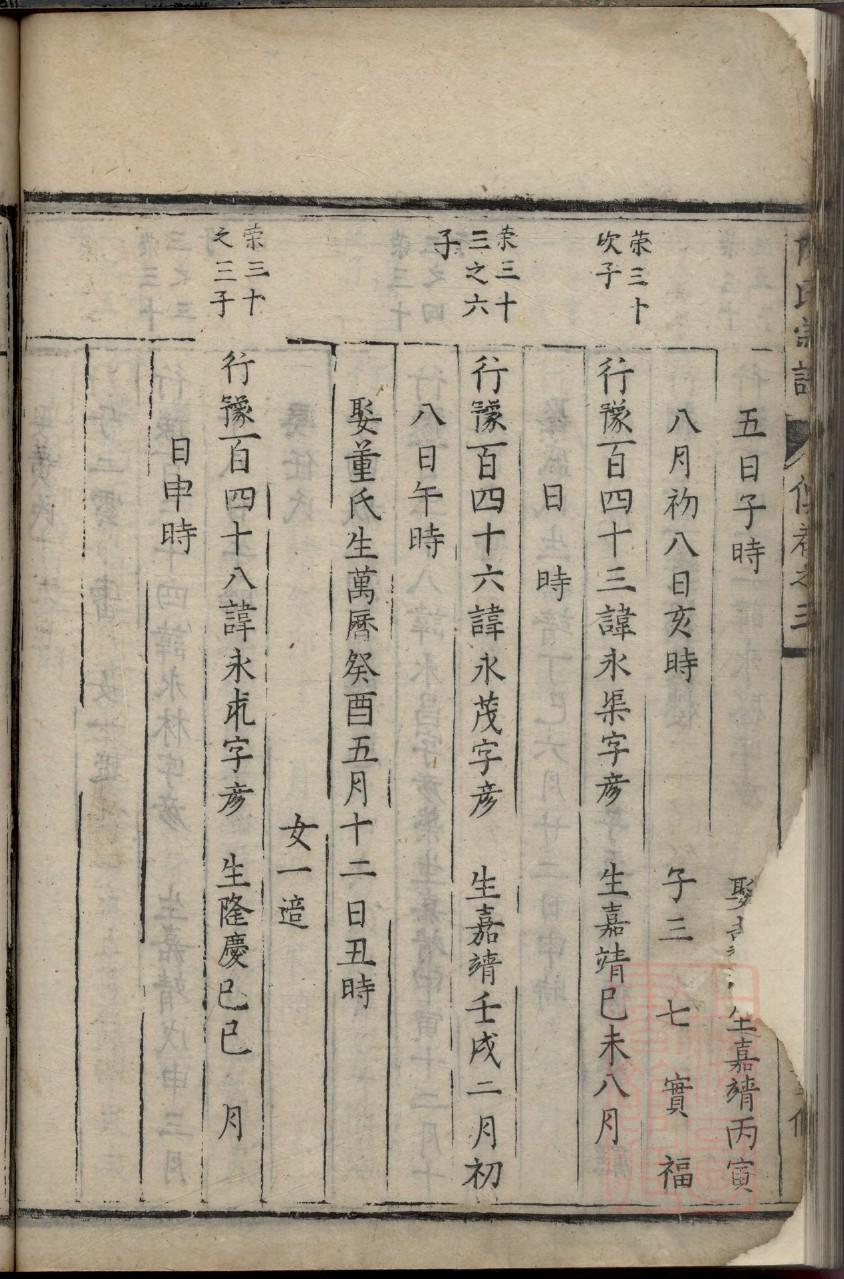 氏宗譜
卷之三
五日子時
生嘉靖丙寅
八月初八日亥時 子三 七 實 福
榮三十
次子
行豫百四十三諱永渠字彥 生嘉靖己未八月
日 時
榮三十
三之六
子
行豫百四十六諱永茂字彥 生嘉靖壬戌二月初
八日午時
娶董氏生萬曆癸酉五月十二日丑時
女一適
榮三十
之三子
行豫百四十八諱永字彥 生隆慶己巳 月
日申時